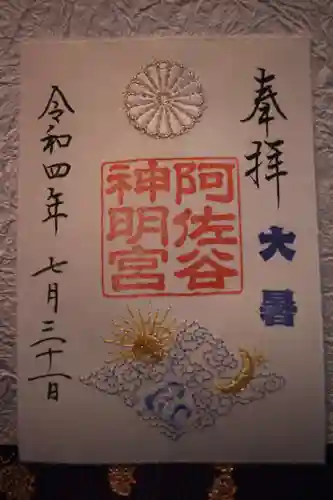 奉拝
大暑
阿佐谷
神明宮
令和四年 七月三十一日